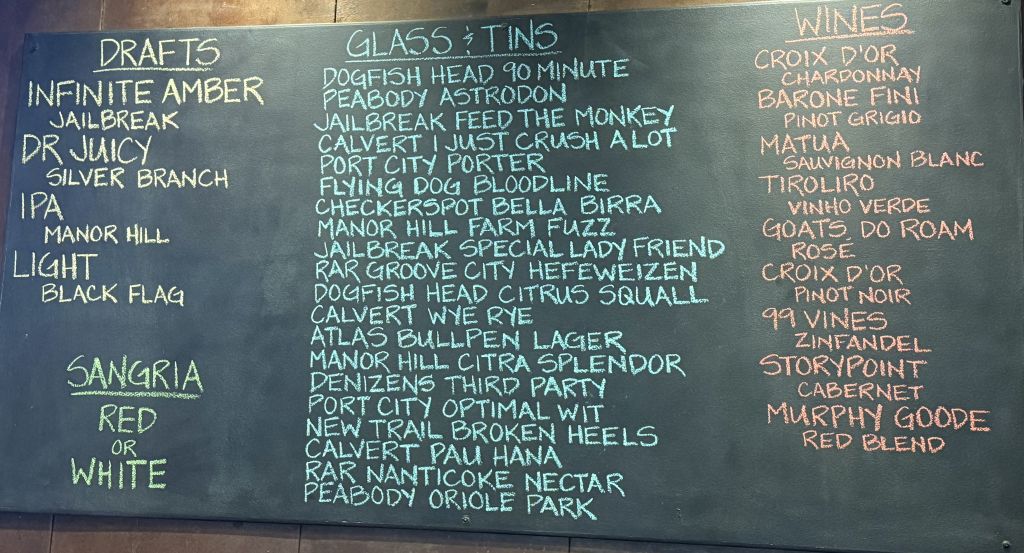 DRAFTS
INFINITE AMBER
JAILBREAK
DR JUICY
SILVER BRANCH
IPA
MANOR HILL
LIGHT
BLACK FLAG
SANGRIA
RED
OR
WHITE
GLASS & TINS
DOGFISH HEAD 90 MINUTE
PEABODY ASTRODON
JAILBREAK FEED THE MONKEY
CALVERT I JUST CRUSH A LOT
PORT CITY PORTER
FLYING DOG BLOODLINE
CHECKERSPOT BELLA BIRRA
MANOR HILL FARM FUZZ
JAILBREAK SPECIAL LADY FRIEND
RAR GROOVE CITY HEFEWEIZEN
DOGFISH HEAD CITRUS SQUALL
CALVERT WYE RYE
ATLAS BULLPEN LAGER
MANOR HILL CITRA SPLENDOR
DENIZENS THIRD PARTY
PORT CITY OPTIMAL WIT
NEW TRAIL BROKEN HEELS
CALVERT PAU HANA
RAR NANTICOKE NECTAR
PEABODY ORIOLE PARK
WINES
CROIX D'OR
CHARDONNAY
BARONE FINI
PINOT GRIGIO
MATUA
SAUVIGNON BLANC
TIROLIRO
VINHO VERDE
GOATS DO ROAM
ROSE
CROIX D'OR
PINOT NOIR
99 VINES
ZINFANDEL
STORYPOINT
CABERNET
MURPHY GOODE
RED BLEND